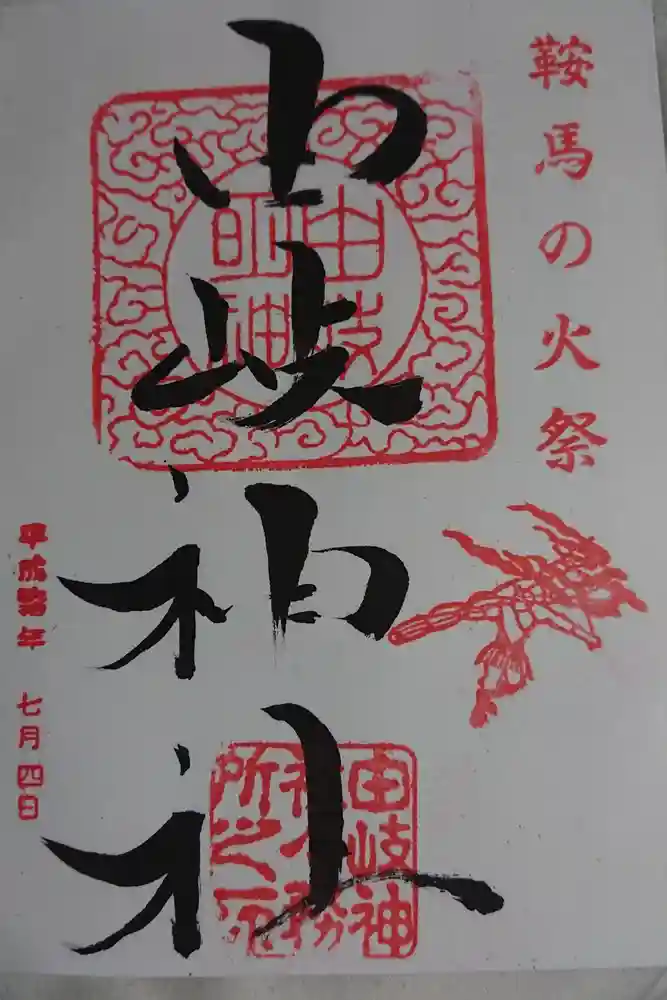 鞍馬の火祭
由岐神社
由岐
明神
由岐神
社々務
所之印
七月四日